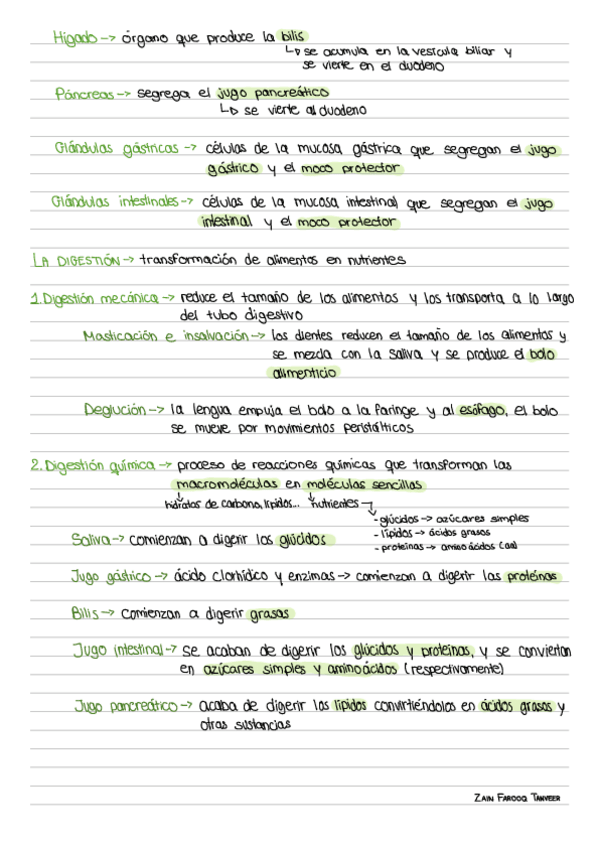 Hígado -> órgano que produce la bilis
↳ se acumula en la vesícula biliar y
se vierte en el duodeno
Páncreas -> segrega el jugo pancreático
↳ se vierte al duodeno
Glándulas gástricas -> células de la mucosa gástrica que segregan el jugo
gástrico y el moco protector
Glándulas intestinales -> células de la mucosa intestinal que segregan el jugo
intestinal y el moco protector
LA DIGESTIÓN -> transformación de alimentos en nutrientes
1. Digestión mecánica -> reduce el tamaño de los alimentos y los transporta a lo largo
del tubo digestivo
Masticación e insalvación -> los dientes reducen el tamaño de los alimentos y
se mezcla con la saliva y se produce el bolo
alimenticio
Deglución -> la lengua empuja el bolo a la faringe y al esófago, el bolo
se mueve por movimientos peristálticos
2. Digestión química -> proceso de reacciones químicas que transforman las
macromoléculas en moléculas sencillas
hidratos de carbono, lípidos... nutrientes ->
- glúcidos -> azúcares simples
- lípidos -> ácidos grasos
- proteínas -> aminoácidos (aa)
Saliva -> comienzan a digerir los glúcidos
Jugo gástrico -> ácido clorhídico y enzimas -> comienzan a digerir las proteínas
Bilis -> comienzan a digerir grasas
Jugo intestinal -> se acaban de digerir los glúcidos y proteínas, y se convierten
en azúcares simples y aminoácidos (respectivamente)
Jugo pancreático -> acaba de digerir los lípidos convirtiéndolos en ácidos grasos y
otras sustancias
ZAIN FAROOQ TANVEER